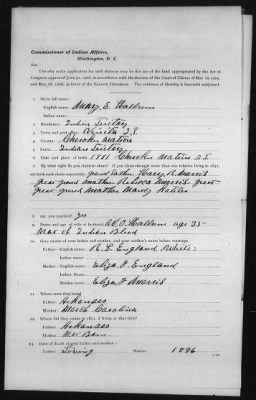 Commissioner of Indian Affairs,
Washington, D. C.
Sir:
I hereby make application for such share as may be due me of the fund appropriated by the Act of
Congress approved June 30, 1906, in accordance with the decrees of the Court of Claims of May 18, 1905,
and May 28, 1906, in favor of the Eastern Cherokees. The evidence of identity is herewith subjoined.
1. State full name:
English name: Mary E. Halbum
Indian name:
2. Residence: Indian Territory
3. Town and post office: I.T.
4. County: Cherokee Nation
5. State: Indian Territory
6. Date and place of birth: 1881 Cherokee Nation I.T.
7. By what right do you claim to share? If you claim through more than one relative living in 1851, set forth each claim separately: grand father Morris
great grand mother Rebecca Morris great
great grand mother
8. Are you married? yes
9. Name and age of wife or husband: Halbum age 35
of Indian Blood
10. Give names of your father and mother, and your mother's name before marriage.
Father—English name: England White
Father—Indian name:
Mother—English name: Eliza England
Mother—Indian name:
Maiden name: Eliza Morris
11. Where were they born?
Father: Arkansas
Mother: North Carolina
12. Where did they reside in 1851, if living at that time?
Father: Arkansas
Mother:
13. Date of death of your father and mother—
Father: Living Mother: 1896